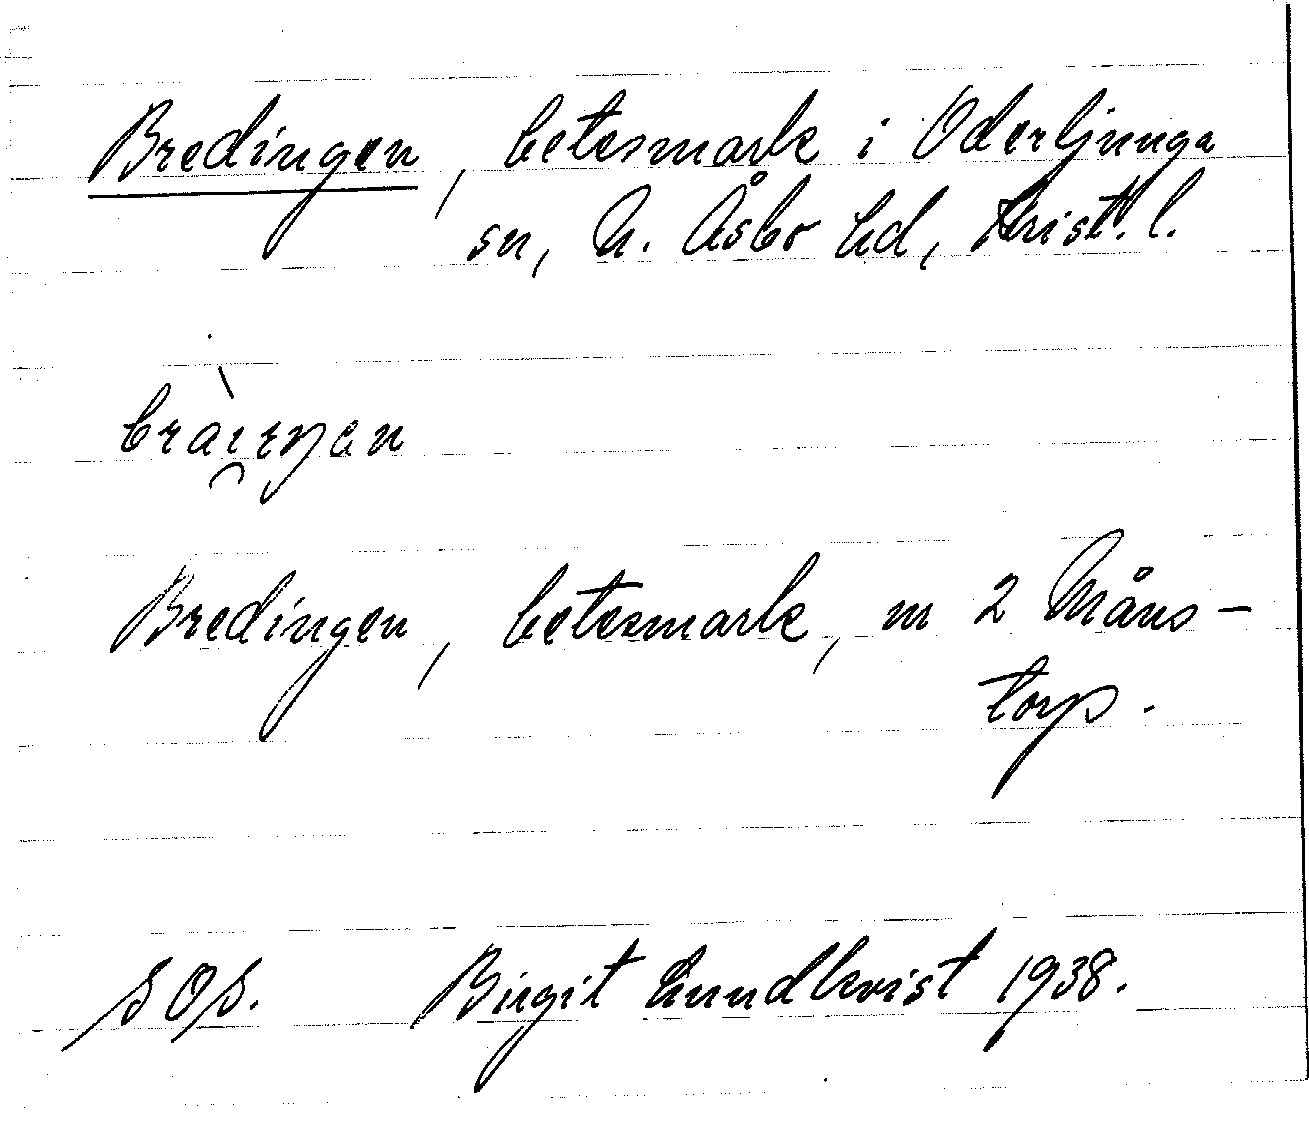 Bredingen, betesmark i Oderljunga
sn, N. Åsbo hd, Krist. l.
Bredingen, betesmark, m 2 Måns-
torp.
SOS. Birgit Lundkvist 1938.